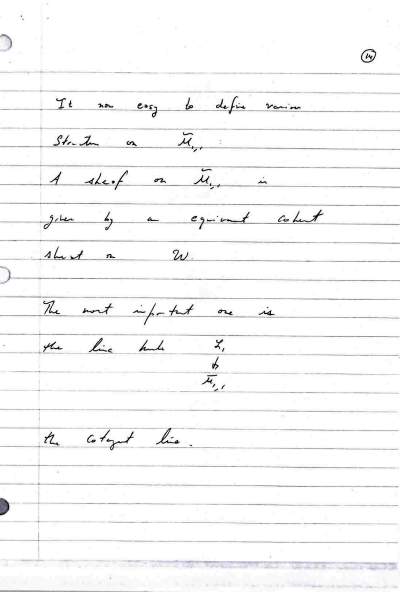 14
It now easy to define various
Structures on M̄₁,₁ :
A sheaf on M̄₁,₁ is
given by an equivariant coherent
sheaf on W.
The most important one is
the line bundle 𝓛₁
↓
M̄₁,₁
the cotangent line.